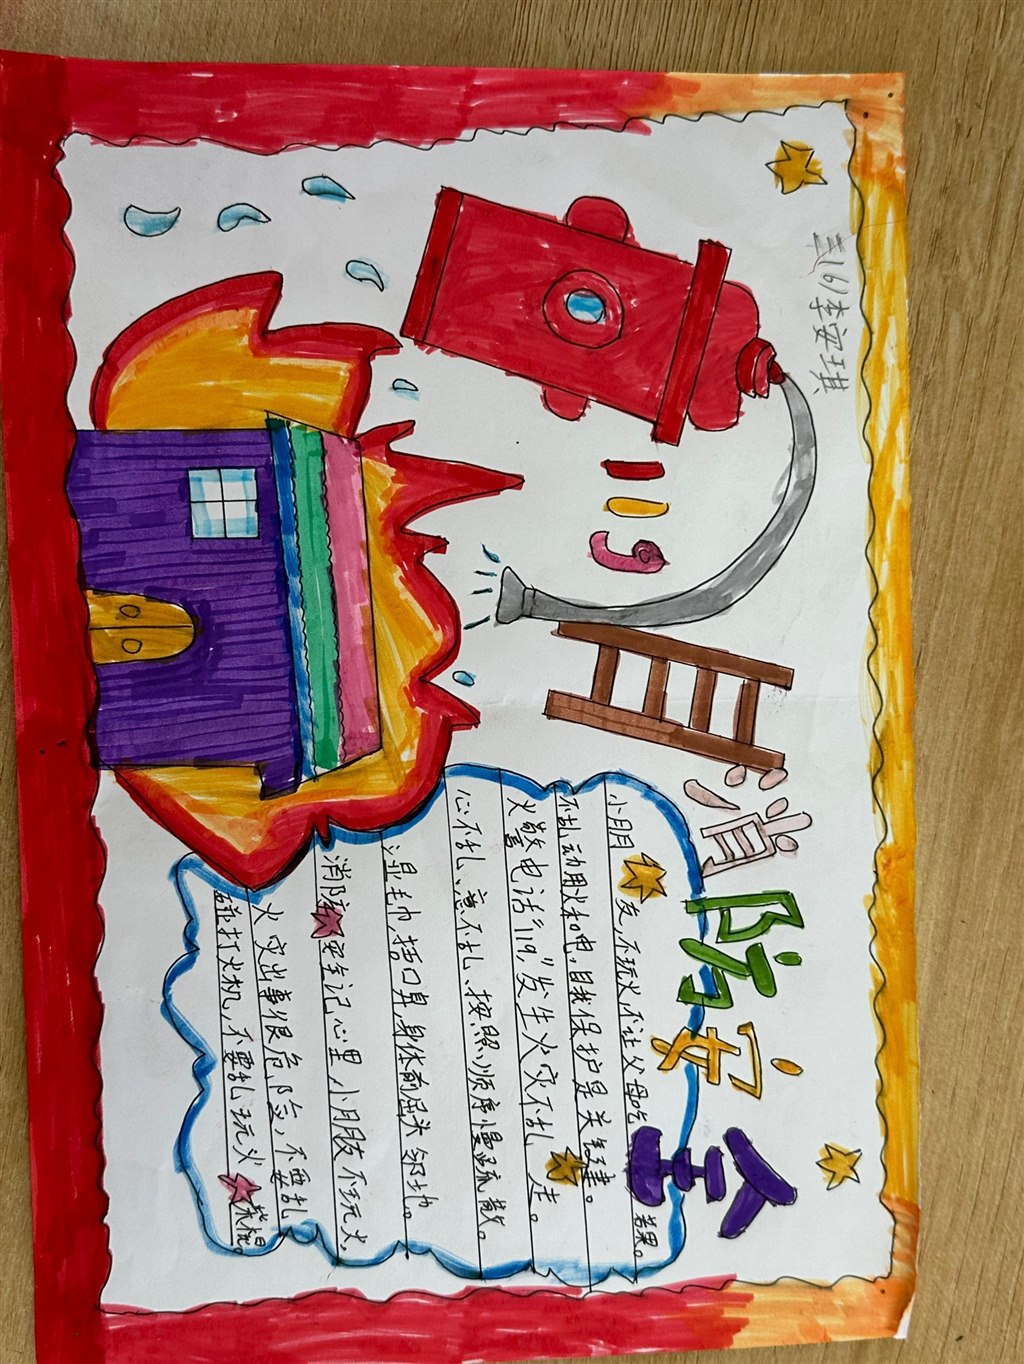 三(6)李安琪
119
消防安全
小朋友,不玩火,不让父母吃苦果。
不乱动用火和电,自我保护是关键。
火警电话“119,”发生火灾不乱走。
心不乱、意不乱、按照顺序慢疏散。
湿毛巾,捂口鼻,身体前屈头邻地。
消防安全记心里,小朋友不玩火,
火灾出事很危险,不要乱
碰打火机,不要乱玩火